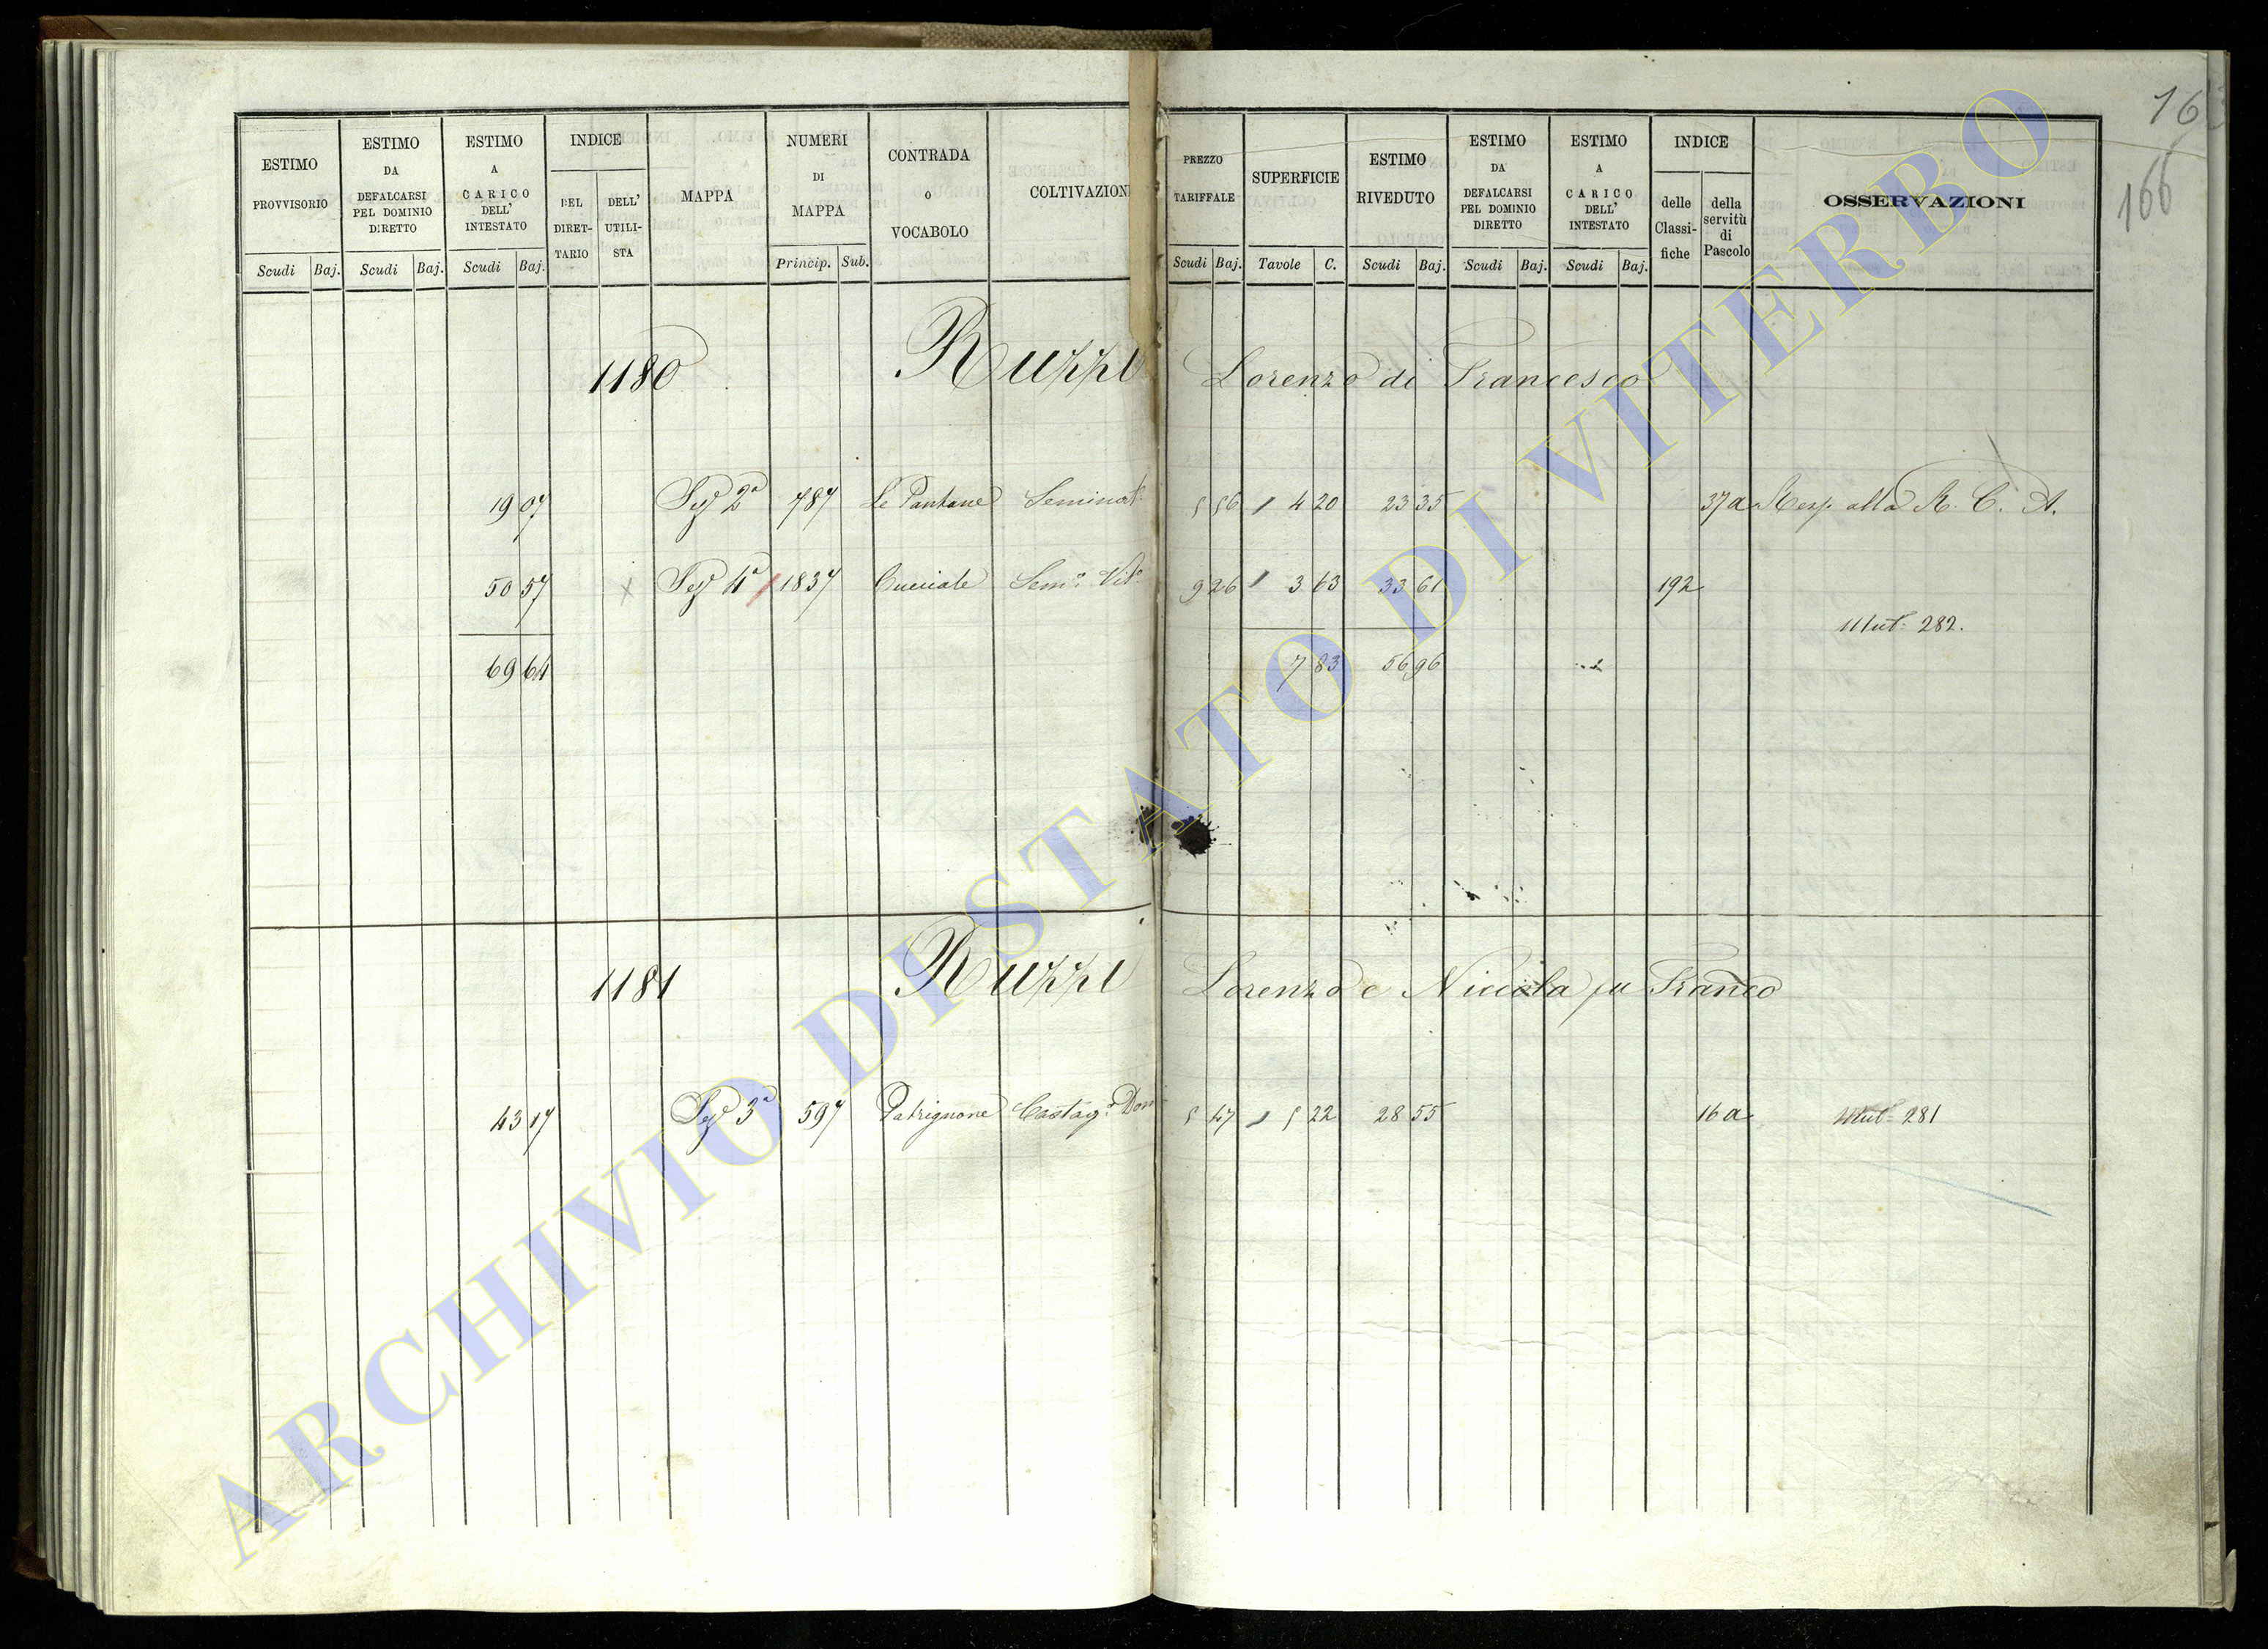 16
166
ESTIMO PROVVISORIO
Scudi Baj.
ESTIMO DA DEFALCARSI PEL DOMINIO DIRETTO
Scudi Baj.
ESTIMO A CARICO DELL' INTESTATO
Scudi Baj.
INDICE
DEL DIRET-TARIO
DELL' UTILI-STA
MAPPA
NUMERI DI MAPPA
Princip. Sub.
CONTRADA o VOCABOLO
COLTIVAZION
PREZZO TARIFFALE
Scudi Baj.
SUPERFICIE
Tavole C.
ESTIMO RIVEDUTO
Scudi Baj.
ESTIMO DA DEFALCARSI PEL DOMINIO DIRETTO
Scudi Baj.
ESTIMO A CARICO DELL' INTESTATO
Scudi Baj.
INDICE
delle Classi-fiche
della servitù di Pascolo
OSSERVAZIONI
1180 Ruzzi Lorenzo di Francesco
19 07 Sez 2a 787 Le Pantane Seminat. 5 56 4 20 23 35 37a Resp. alla R. C. A.
50 57 x Sez 4a 1837 Cucciale Sem.o Vit.o 9 26 3 63 33 61 192
Mut. 282.
69 64 7 83 56 96
1181 Ruzzi Lorenzo e Niccola fu Franco
43 17 Sez 3a 597 Patrignone Castag.o Dom 5 47 5 22 28 55 16a Mut. 281
ARCHIVIO DI STATO DI VITERBO